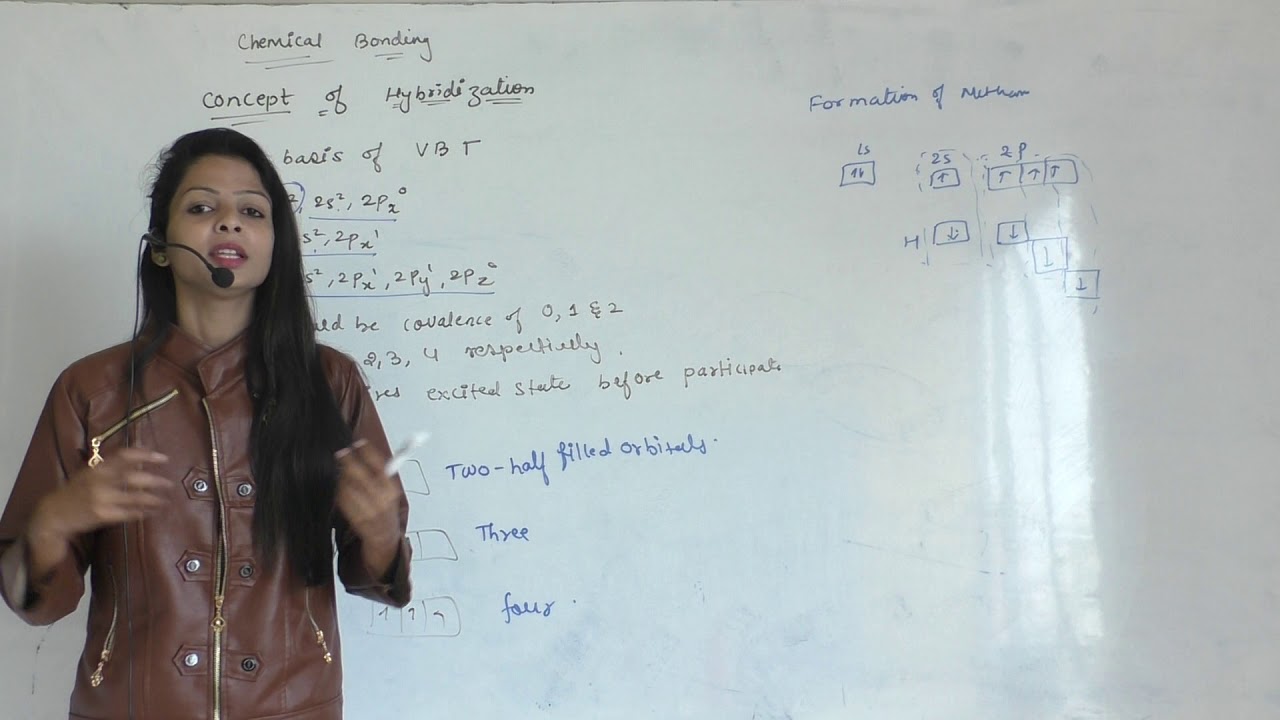 Chemical Bonding
Concept of Hybridization
basis of VBT
2, 2s², 2Px⁰
s², 2Px¹
s², 2Px¹, 2Py¹, 2Pz⁰
be covalence of 0, 1 & 2
2, 3, 4 respectively.
excited state before participate
Two-half filled orbitals.
Three
four.
Formation of
1s 2s 2P
↑↓ ↑ ↑ ↑ ↑
H ↓ ↓
↓
↓